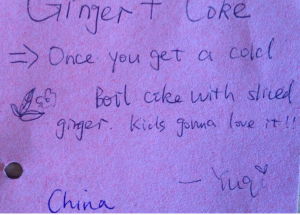 Ginger + Coke
=> Once you get a cold
Boil coke with sliced
ginger. Kids gonna love it!!
— Yuqi
China